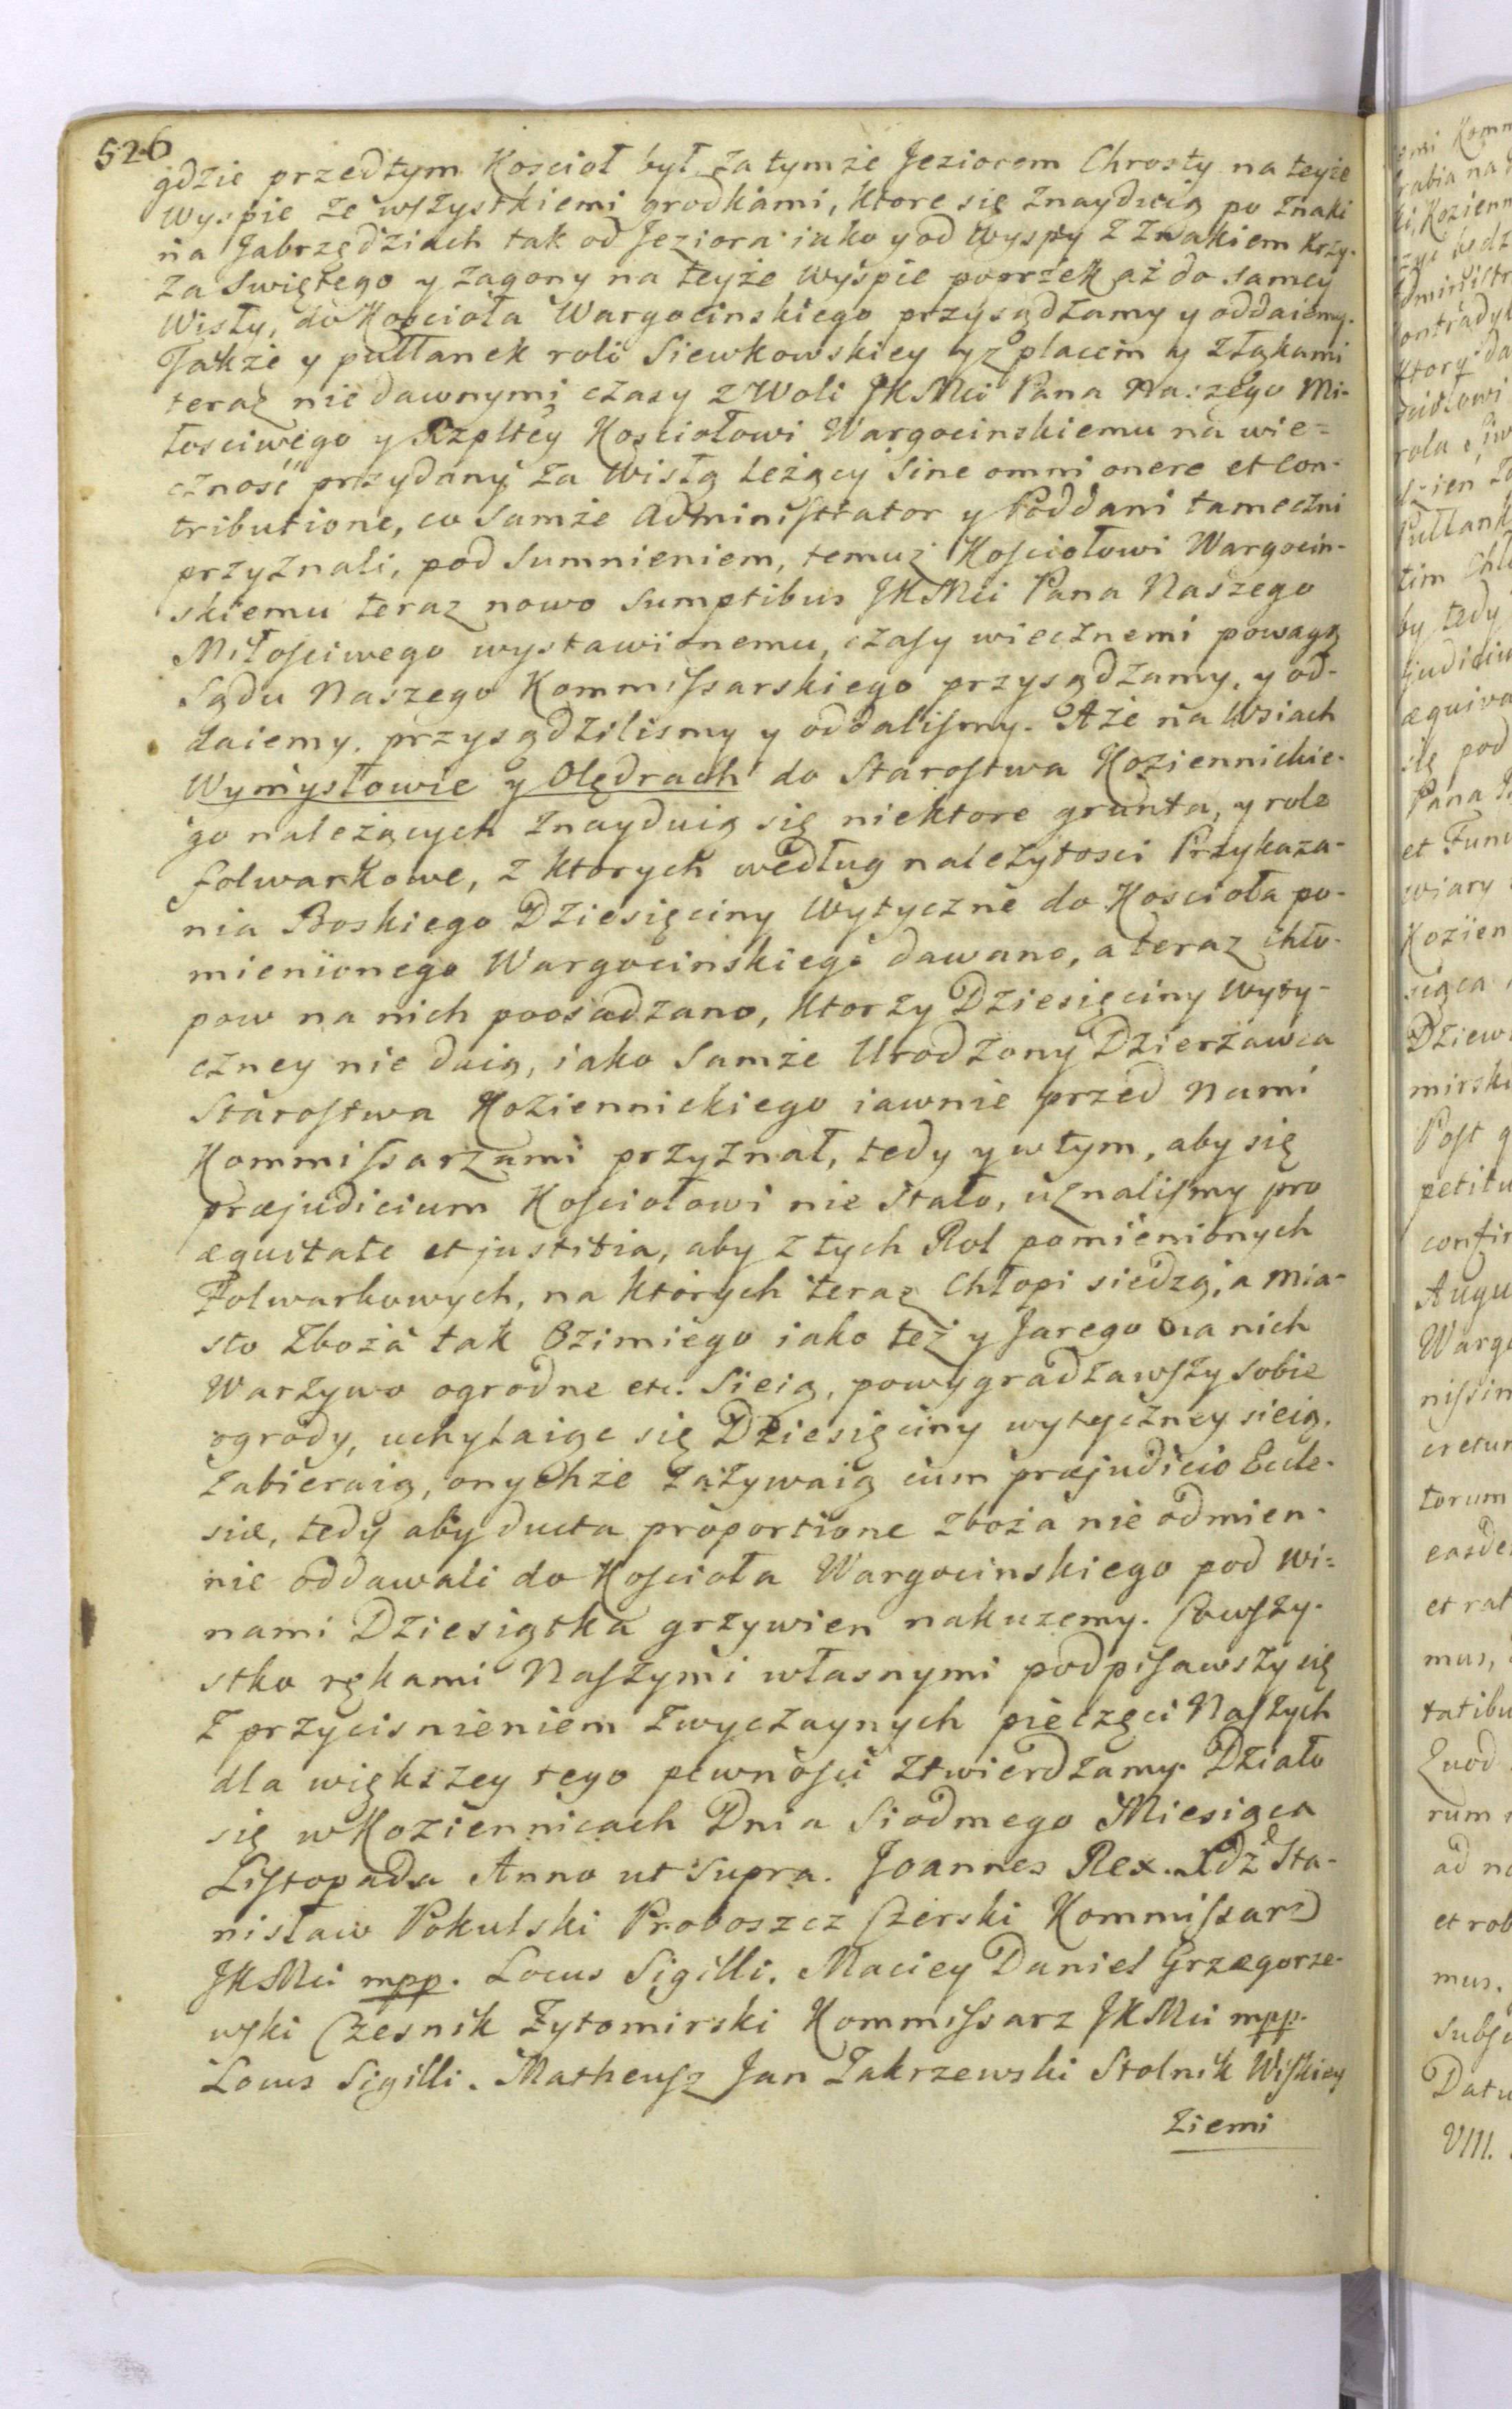 526
gdzie przedtym Koscioł był za tymże Jeziorem Chrosty na teyże
wyspie ze wszystkiemi grodkami, ktore się znayduią po znaki
na Jabrzędziach tak od Jeziora iako y od wyspy z znakiem krzy-
za swiętego y zagony na teyże wyspie poprzek aż do samey
Wisły, do Kościoła Wargocinskiego przysądzamy y oddaiemy.
Także y pułłanek roli Siewkowskiey y z placem y złąkami
teraz niedawnymi czasy z Woli JKMci Pana Naszego Mi-
łosciwego y Rzpltey Kosciołowi Wargocinskiemu na wie-
czność przydany za Wisłą leżący sine omni onere et con-
tributione, co samże Administrator y Poddani tameczni
przyznali, pod sumnieniem, temuż Kościołowi Wargocin-
skiemu teraz nowo sumptibus JKMci Pana Naszego
Miłościwego wystawionemu, czasy wiecznemi powagą
Sądu Naszego Kommissarskiego przysądzamy, y od-
daiemy, przysądzilismy y oddalismy. Aże na Wsiach
Wymysłowie y Olędrach do Starostwa Koziennickie-
go należących znayduią się niektore grunta, y role
folwarkowe, z ktorych według należytosci Przykaza-
nia Boskiego Dziesięciny wytyczne do Kościoła po-
mienionego Wargocinskiego dawano, a teraz chło-
pow na nich poosadzano, ktorzy Dziesięciny wyty-
czney nie daią, iako samże Urodzony Dzierżawca
Starostwa Koziennickiego iawnie przed nami
Kommissarzami przyznał, tedy y w tym, aby się
præjudicium Kościołowi nie stało, uznaliśmy pro
æquitate et justitia, aby z tych Rol pomienionych
Folwarkowych, na ktorych teraz Chłopi siedzą, a mia-
sto zboża tak Ozimiego iako też y Jarego na nich
Warzywo ogrodne etc. sieią, powygradzawszy sobie
ogrody, uchylaiąc się Dziesięciny wytyczney sieią,
zabieraią, onychże zażywaią cum præjudicio Eccle-
siæ, tedy aby ducta proportione zboża nie odmien-
nie oddawali do Kościoła Wargocinskiego pod wi-
nami Dziesiątka grzywien nakazemy. Cowszy-
stko rękami Naszymi własnymi podpisawszy się
z przycisnieniem zwyczaynych pieczęci Naszych
dla większey tego pewności ztwierdzamy. Działo
się w Koziennicach Dnia Siodmego Miesiąca
Listopada Anno ut supra. Joannes Rex. Xdz Sta-
nisław Pokulski Proboszcz Czerski Kommissarz
JKMci mpp. Locus Sigilli. Maciey Daniel Grzegorze-
wski Czesnik Żytomirski Kommissarz JKMci mpp.
Locus Sigilli. Matheusz Jan Zakrzewski Stolnik Wiskiey
Ziemi